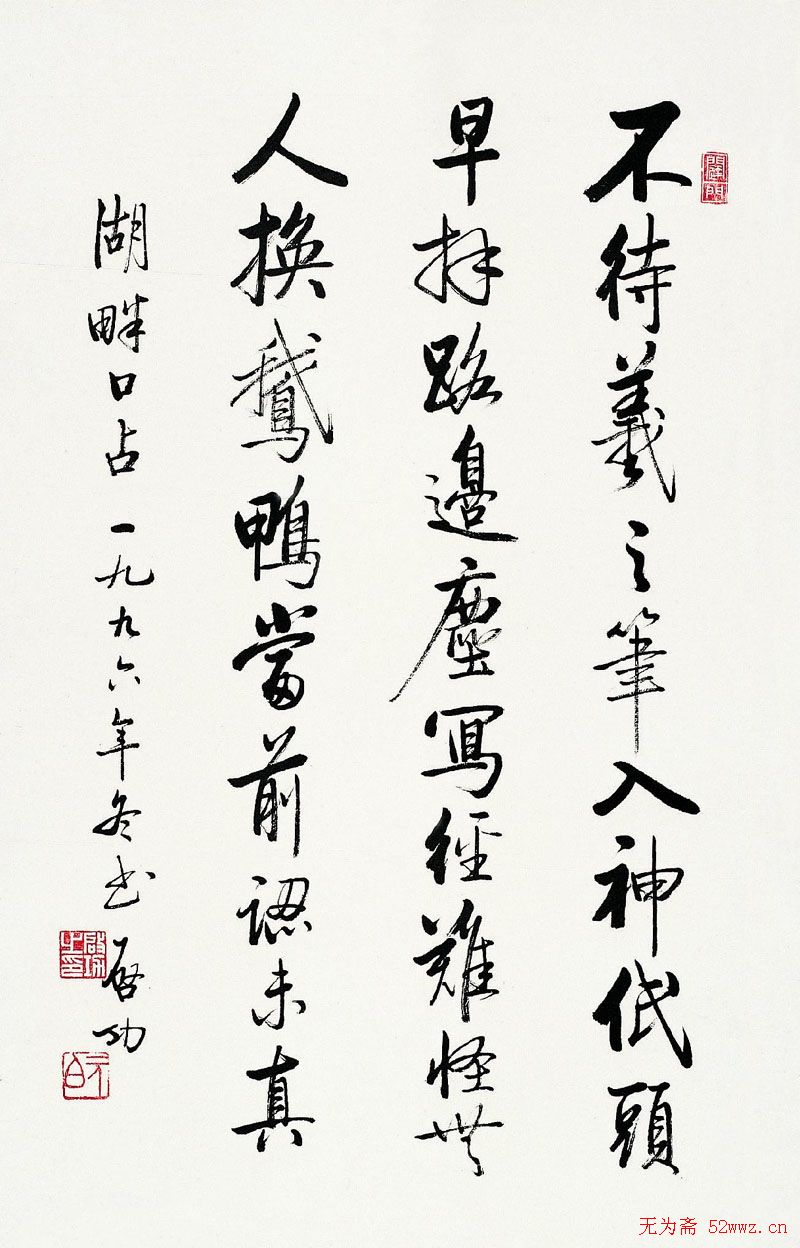 不待羲之筆入神低頭
早拜路邊塵寫經難怪無
人換鵝鴨當前認未真
湖畔口占一九九六年冬書啓功
啟功之印
元白
无为斋 52wwz.cn